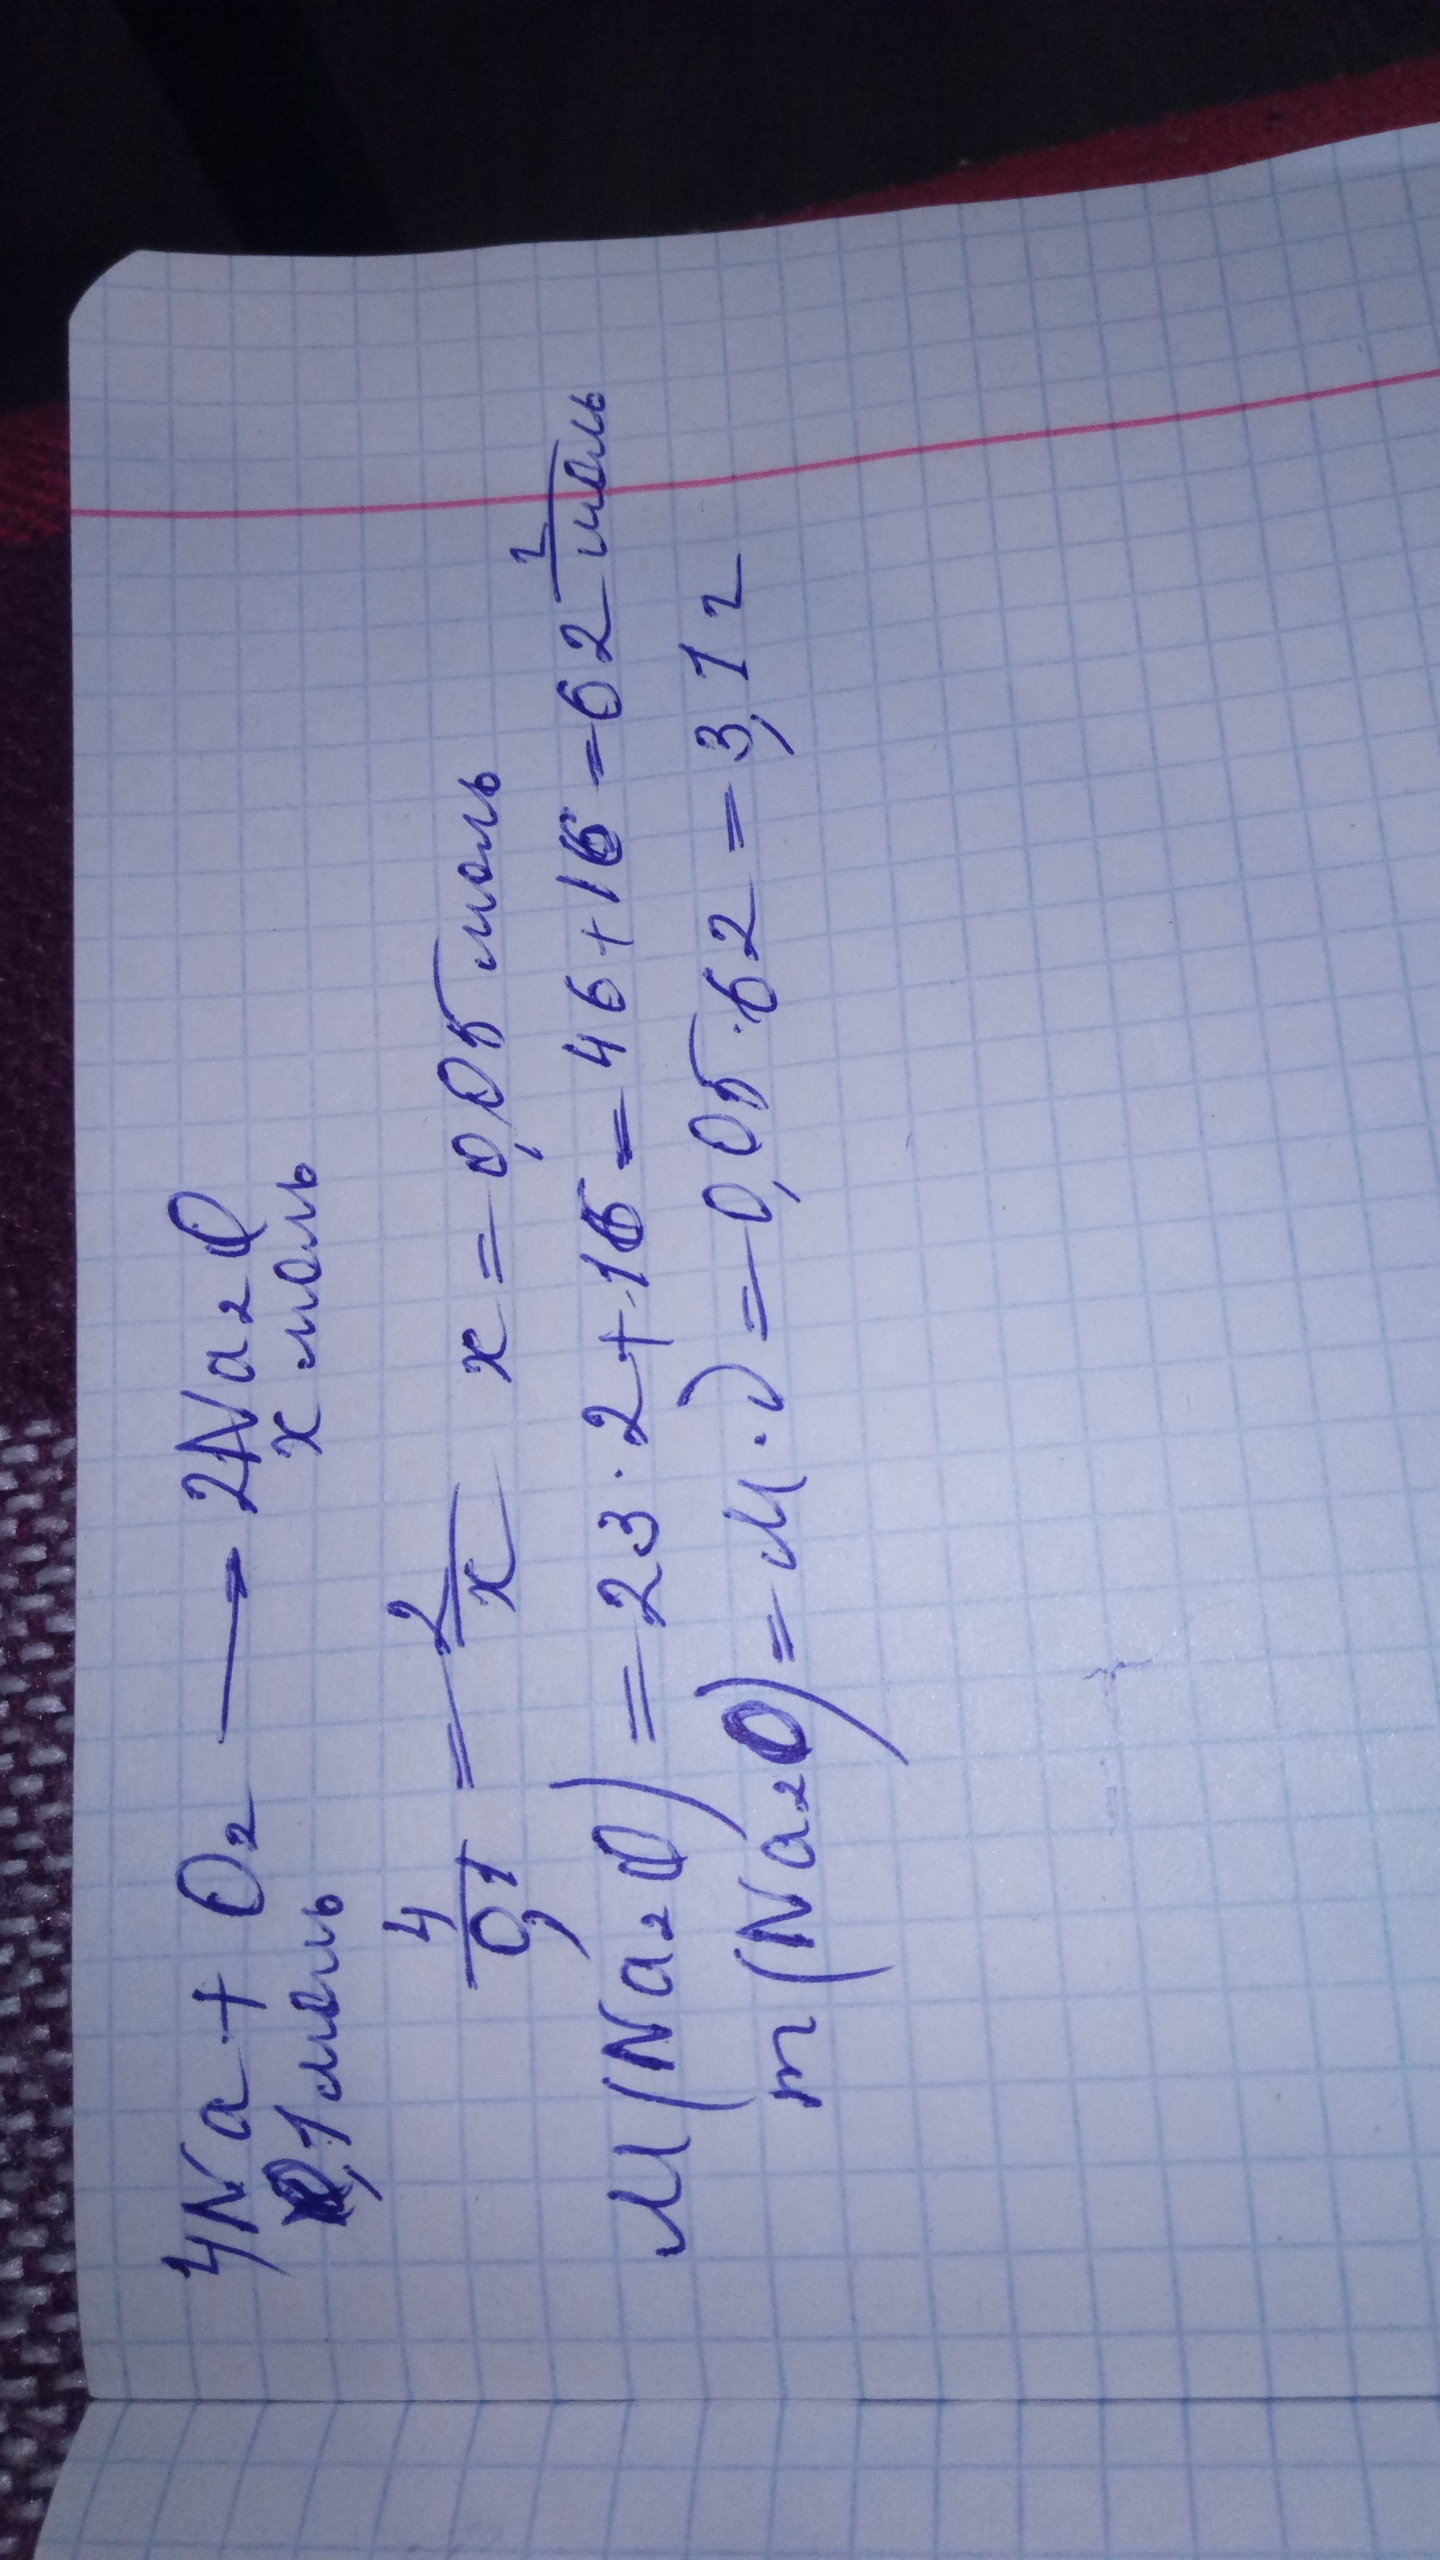 4Na + O₂ → 2Na₂O
0,1 моль x моль
4/0,1 = 2/x x = 0,05 моль
M(Na₂O) = 23 · 2 + 16 = 46 + 16 = 62 г/моль
m(Na₂O) = M · ν = 0,05 · 62 = 3,1 г